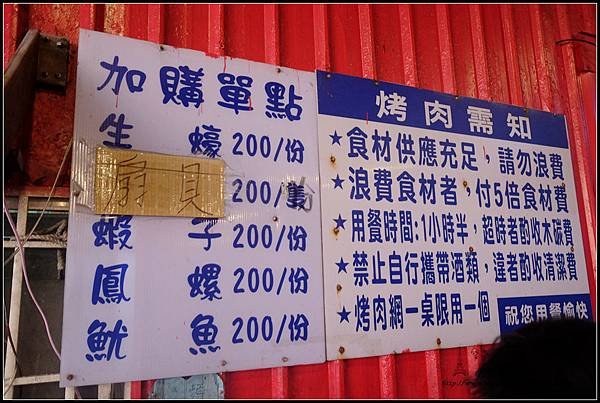 加購單點
生蠔 200/份
扇貝 200/份
蝦子 200/份
鳳螺 200/份
魷魚 200/份
烤肉需知
★食材供應充足，請勿浪費
★浪費食材者，付5倍食材費
★用餐時間:1小時半，超時者酌收木碳費
★禁止自行攜帶酒類，違者酌收清潔費
★烤肉網一桌限用一個
祝您用餐愉快